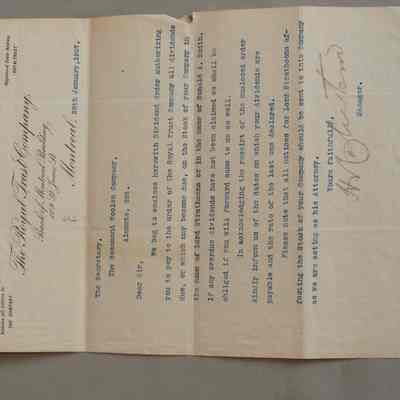 Registered Cable Address
"ROYALTRUST"
Address all letters to
THE SECRETARY
The Royal Trust Company,
Bank of Montreal Building,
109 St. James St.
Montreal, 28th January, 1907.
The Secretary,
The Rosamond Woolen Company,
Almonte, Ont.
Dear Sir,
We beg to enclose herewith Dividend Order authorizing
you to pay to the order of The Royal Trust Company all dividends
due, or which may become due, on the Stock of your Company in
the name of Lord Strathcona or in the name of Donald A. Smith.
If any overdue dividends have not been claimed we shall be
obliged if you will forward same to us as well.
In acknowledging the receipt of the enclosed order
kindly inform us of the dates on which your dividends are
payable and the rate of the last one declared.
Please note that all notices for Lord Strathcona af-
fecting the Stock of your Company should be sent to this Company
as we are acting as his Attorney.
Yours faithfully,
Manager.